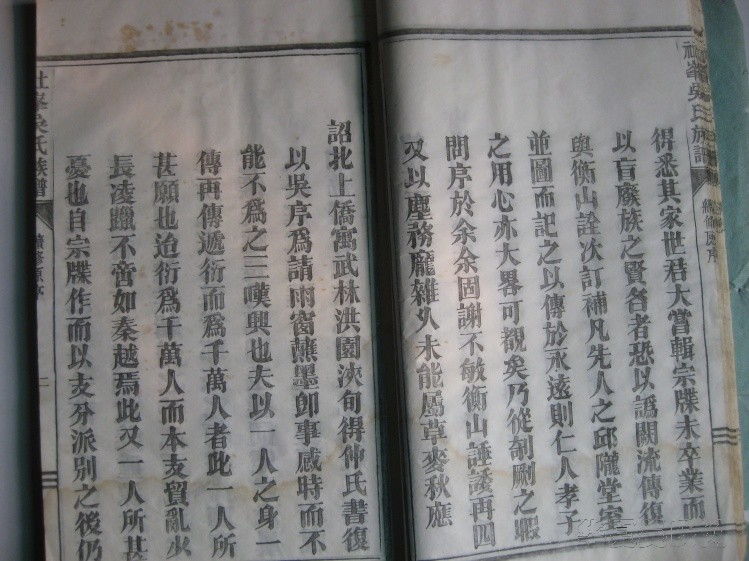 社峯吳氏族譜
續修原序
得悉其家世君大嘗輯宗牒未卒業而
以盲廢族之賢咎者恐以譌闕流傳復
與衡山詮次訂補凡先人之邱隴堂室
並圖而記之以傳於永遠則仁人孝子
之用心亦大畧可觀矣乃從剞劂之暇
問序於余余固謝不敏衡山諈諉再四
又以塵務龐雜久未能屬草麥秋應
詔北上僑寓武林洪園浹旬得仲氏書復
以吳序爲請雨窗蘸墨卽事感時而不
能不爲之三嘆興也夫以一人之身一
傳再傳遞衍而爲千萬人者此一人所
甚願也迨衍爲千萬人而本支貿亂少
長凌躐不啻如秦越焉此又一人所甚
憂也自宗牒作而以支分派別之後仍
社峯吳氏族譜
續修原序
二